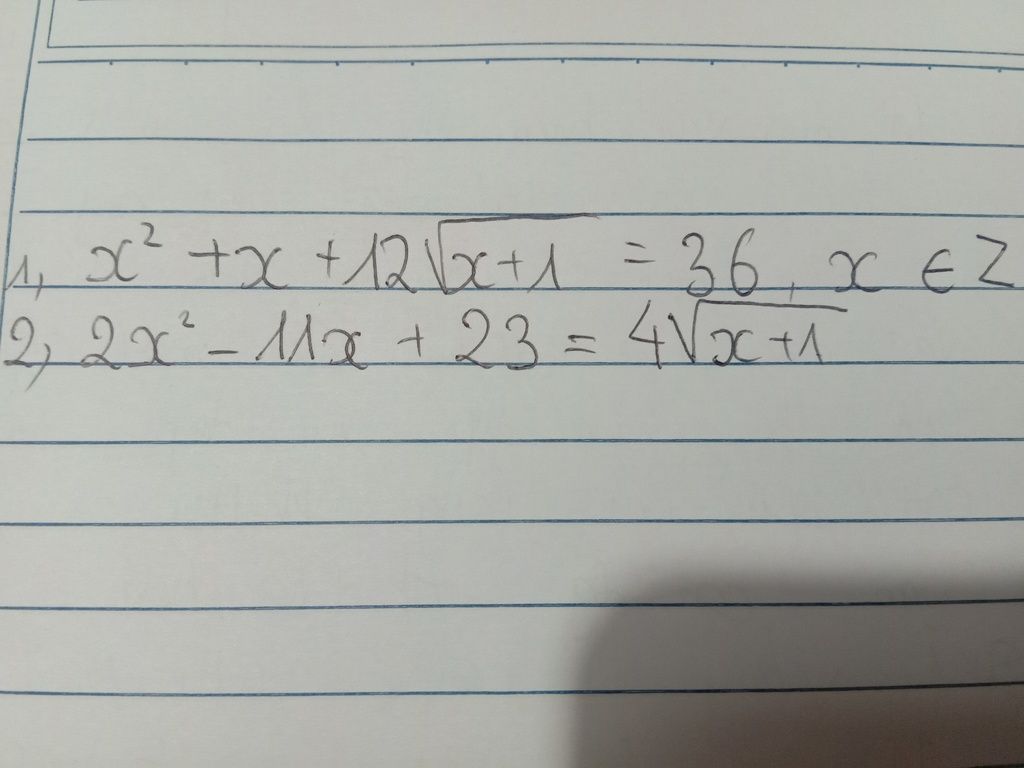 1, x² + x + 12√(x+1) = 36, x ∈ Z
2, 2x² - 11x + 23 = 4√(x+1)